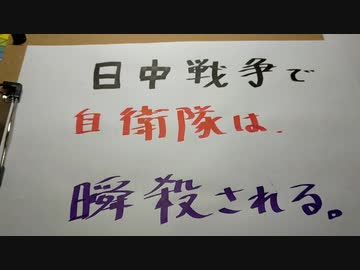 日中戦争で
自衛隊は、
瞬殺される。